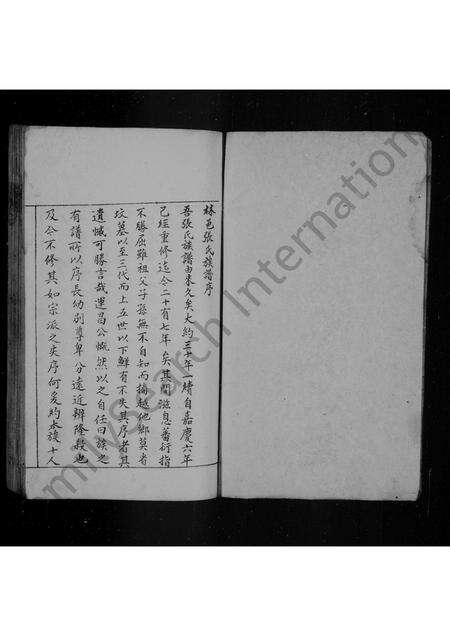 林邑張氏族譜序
吾張氏族譜由來久矣大約三十年一續自嘉慶六年
已經重修迄今二十有七年矣其間滋息蕃衍指
不勝屈雖祖父子孫無不自知而播越他鄉莫考
墳墓以至三代而上五世以下鮮有不失其序者其
遺憾可勝言哉運昌公慨然以之自任曰族之
有譜所以序長幼別尊卑分遠近辨隆殺也
及今不修其如宗派之失序何爰約本族十人
milySearch Internation